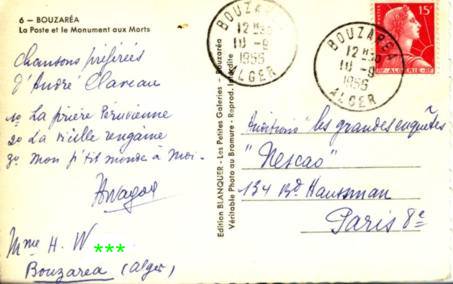 6 – BOUZARÉA
La Poste et le Monument aux Morts
Chansons préférées
d'André Claveau
1o La prière Péruvienne
2o La vieille rengaine
3o Mon p'tit monde à moi.
Mme H. W ***
Bouzarea (Alger)
Edition BLANQUER - Les Petites Galeries - Bouzaréa
Véritable Photo au Bromure - Reprod. Interdite
BOUZAREA
12H30
10-9
1956
ALGER
BOUZAREA
12H30
10-9
1956
ALGER
15F
Auditions les grandes enquêtes
"Nescao"
134 Bd Haussman
Paris 8e